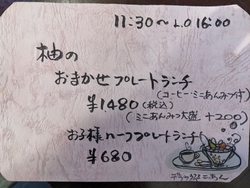 11:30〜L.O 16:00
柚の
おまかせプレートランチ
(コーヒー・ミニあんみつ付)
¥1480(税込)
(ミニあんみつ大盛 +200)
お子様ハーフプレートランチ
¥680